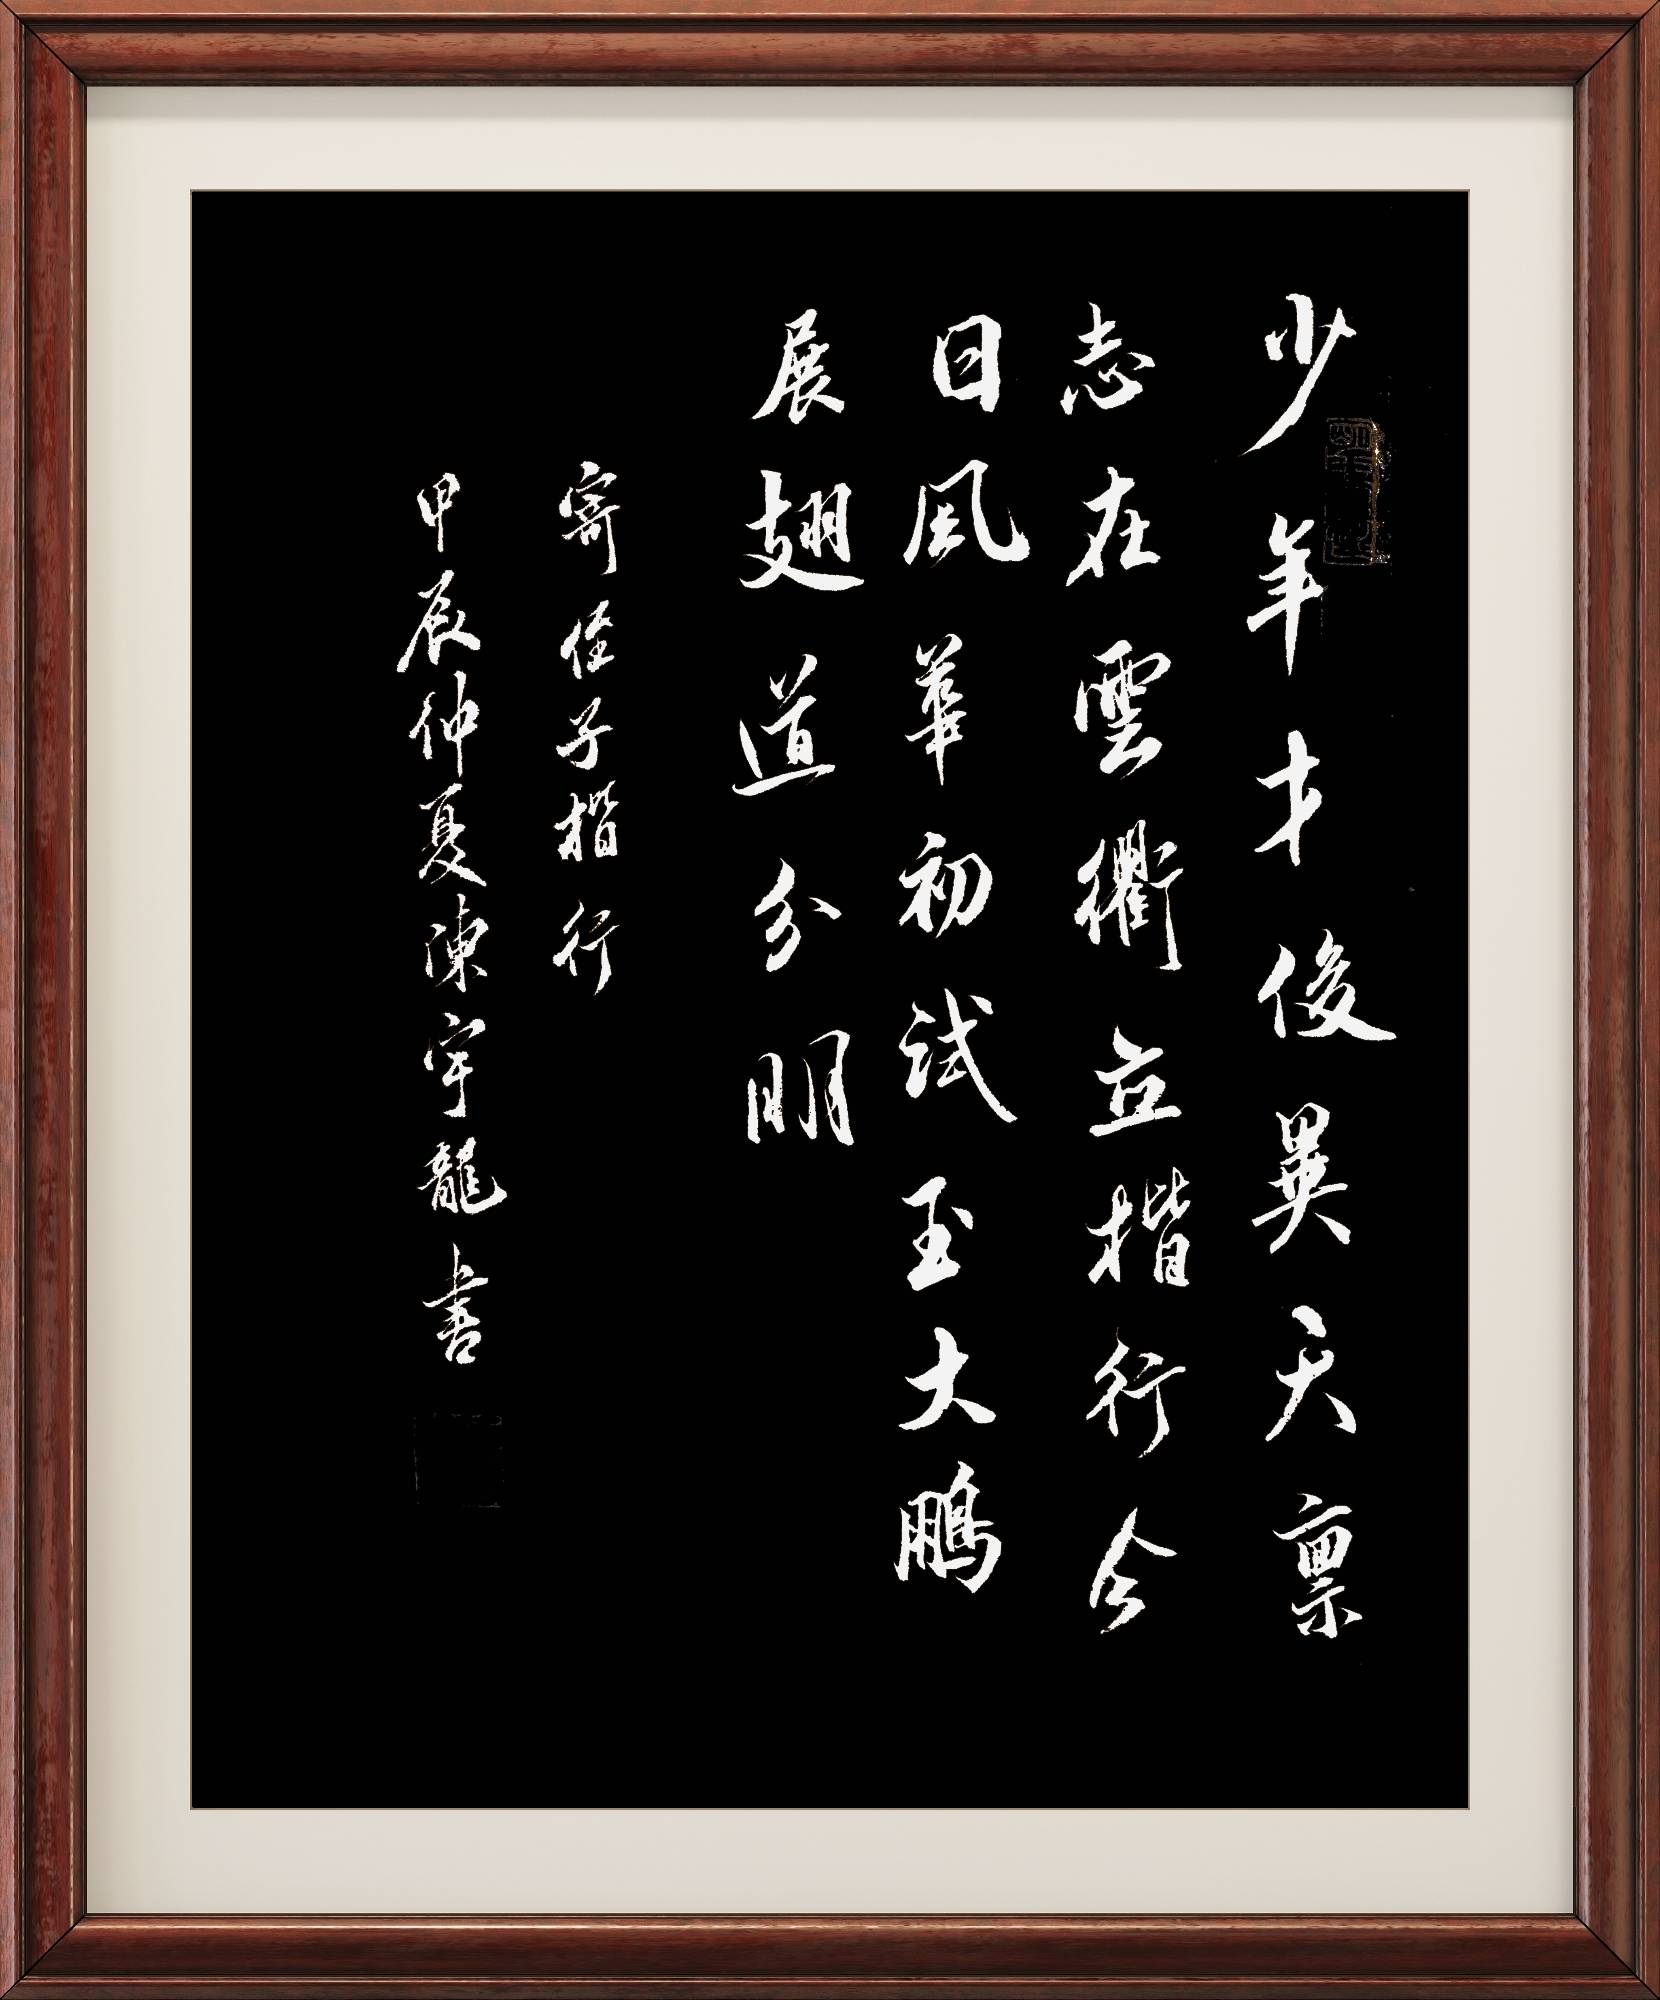 少年才俊異天禀
志在雲衢立楷行今
日風華初試玉大鵬
展翅道分明
寄侄子楷行
甲辰仲夏陳宇龍書